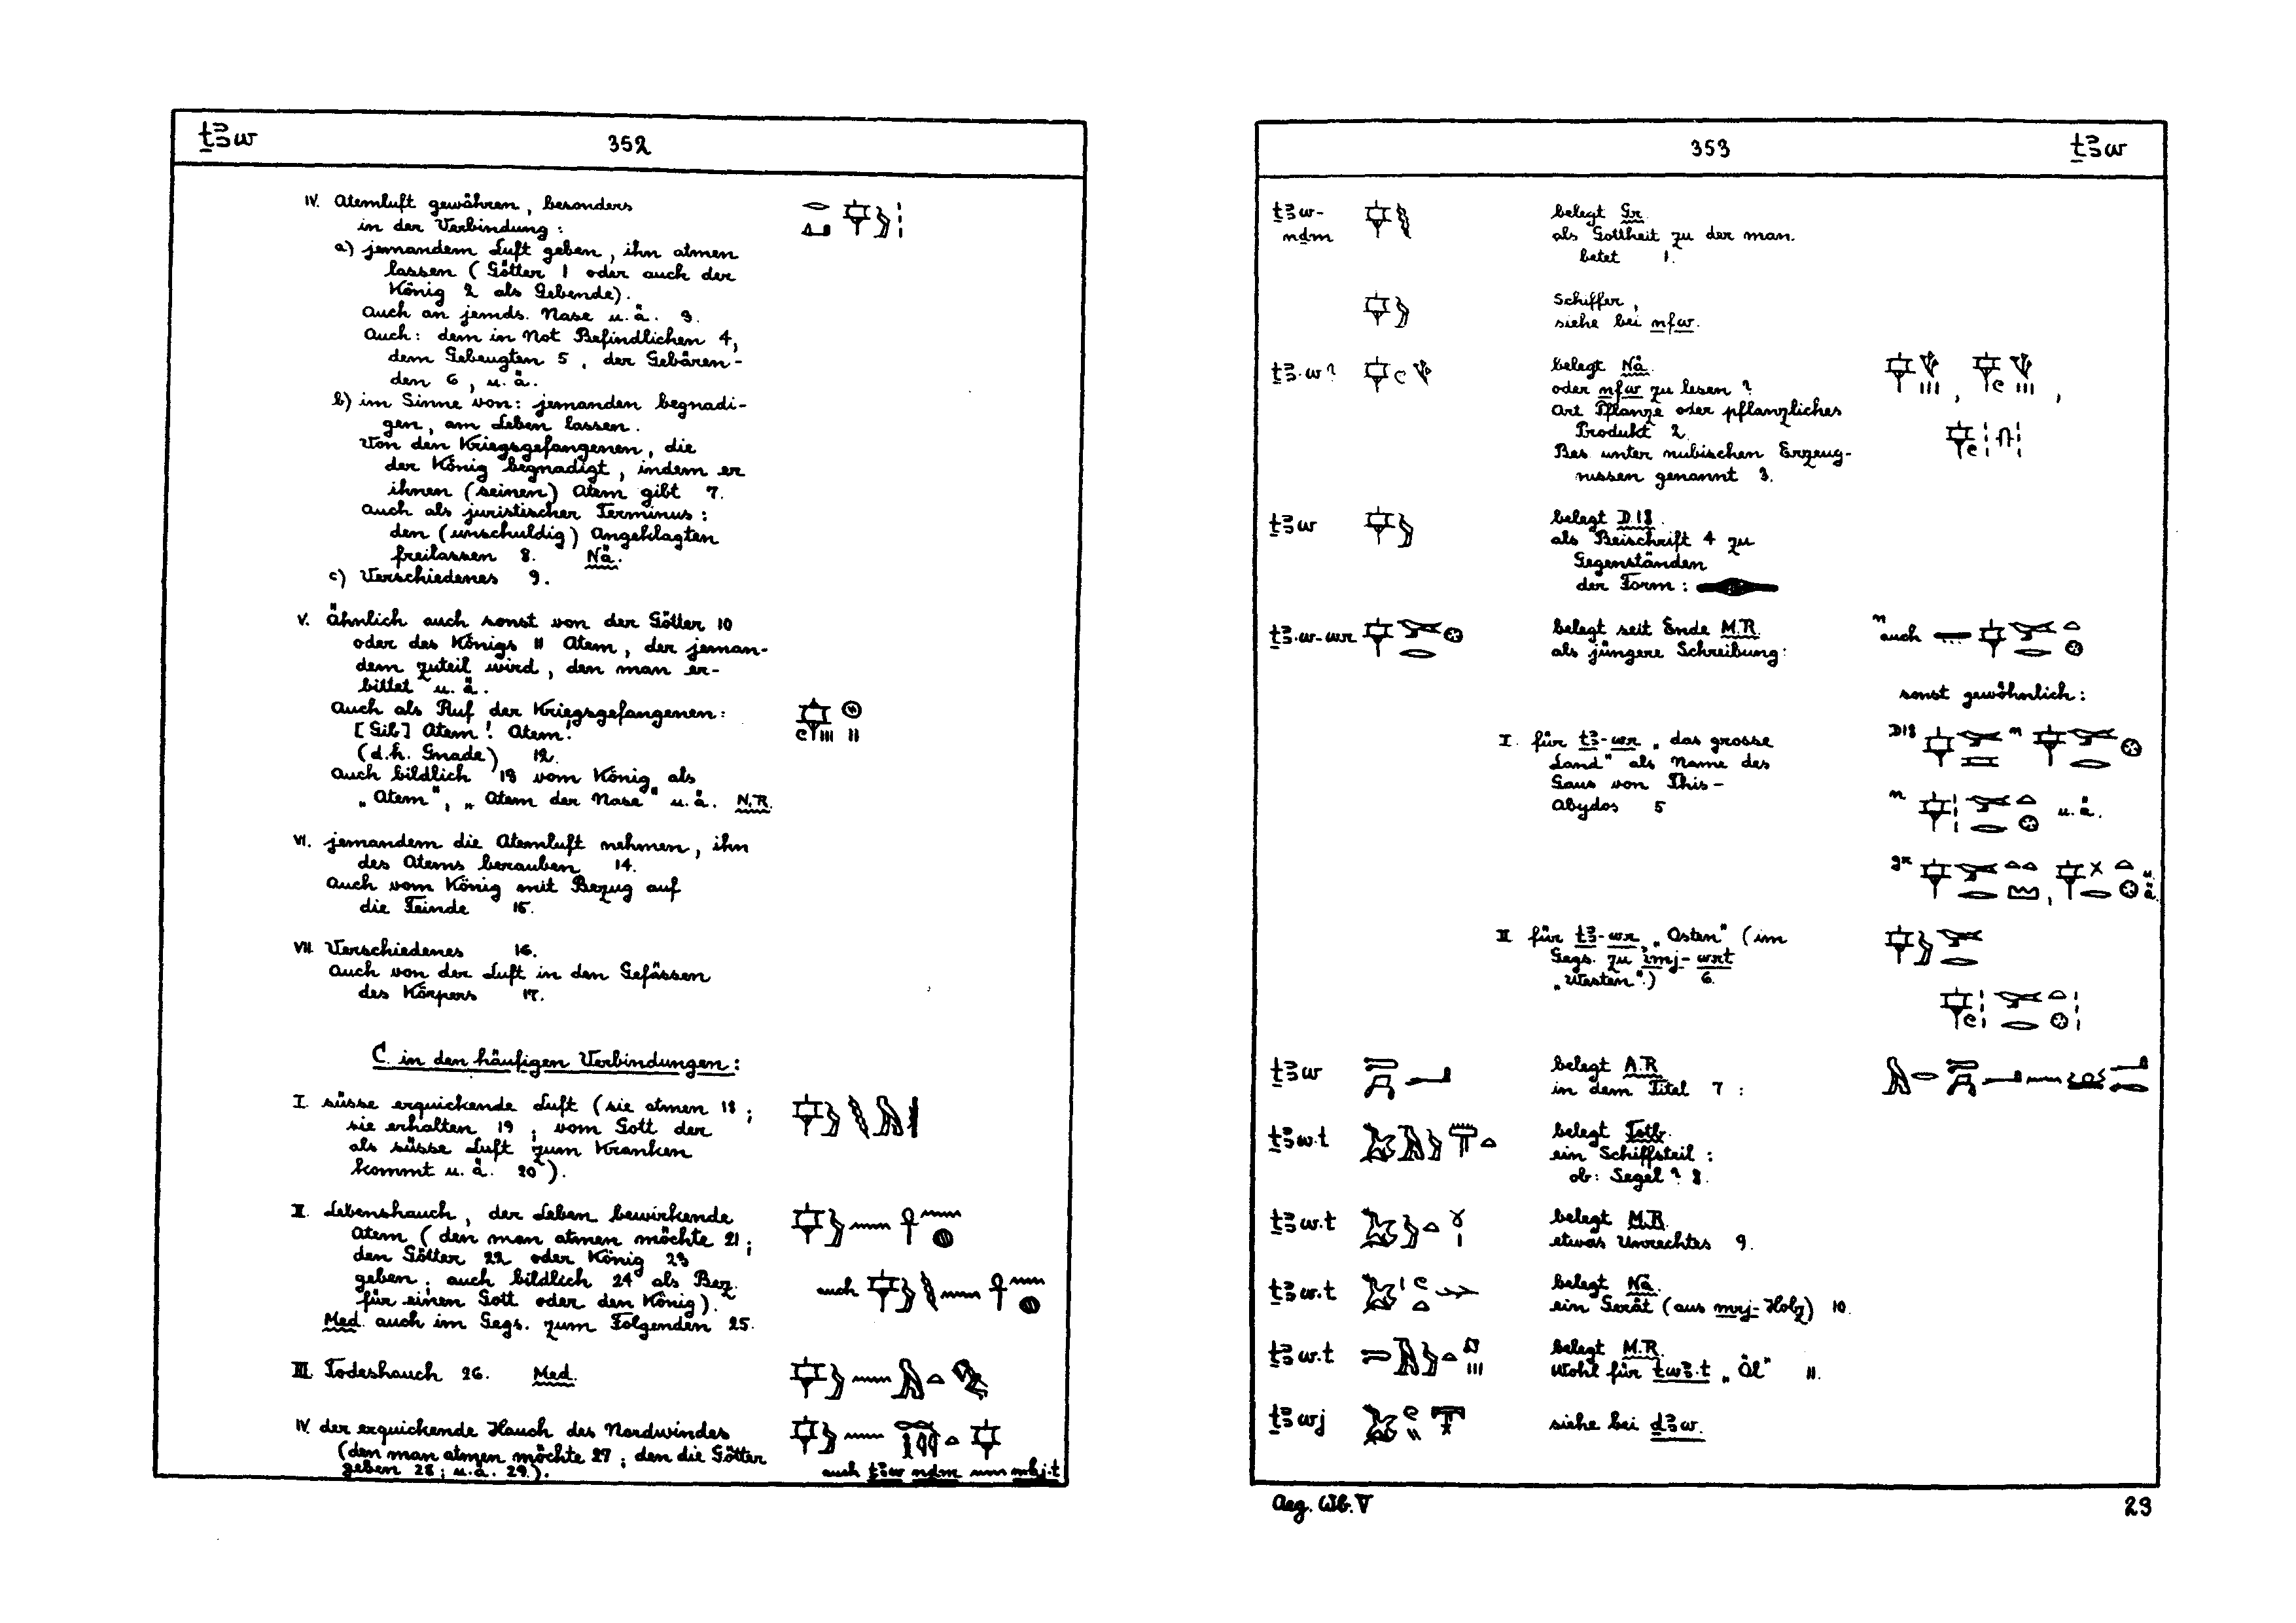 ṯꜣw 352
IV. Atemluft gewähren, besonders
in der Verbindung:
a) jemandem Luft geben, ihn atmen
lassen (Götter 1 oder auch der
König 2 als Gebende).
Auch an jemds. Nase u.ä. 3.
Auch: dem in Not Befindlichen 4,
dem Gebeugten 5, der Gebären-
den 6, u.ä.
b) im Sinne von: jemanden begnadi-
gen, am Leben lassen.
Von den Kriegsgefangenen, die
der König begnadigt, indem er
ihnen (seinen) Atem gibt 7.
Auch als juristischer Terminus:
den (unschuldig) Angeklagten
freilassen 8. Nä.
c) Verschiedenes 9.
V. Ähnlich auch sonst von der Götter 10
oder des Königs 11 Atem, der jeman-
dem zuteil wird, den man er-
bittet u.ä.
Auch als Ruf der Kriegsgefangenen:
[Gib] Atem! Atem!
(d.h. Gnade) 12.
Auch bildlich 13 vom König als
„Atem", „Atem der Nase" u.ä. N.R.
VI. jemandem die Atemluft nehmen, ihn
des Atems berauben 14.
Auch vom König mit Bezug auf
die Feinde 15.
VII. Verschiedenes 16.
Auch von der Luft in den Gefässen
des Körpers 17.
C. in den häufigen Verbindungen:
I. süsse erquickende Luft (sie atmen 18;
sie erhalten 19; vom Gott der
als süsse Luft zum Kranken
kommt u.ä. 20).
II. Lebenshauch, der Leben bewirkende
Atem (den man atmen möchte 21;
den Götter 22 oder König 23
geben; auch bildlich 24 als Bez.
auch
für einen Gott oder den König).
Med. auch im Gegs. zum Folgenden 25.
III. Todeshauch 26. Med.
IV. der erquickende Hauch des Nordwindes
(den man atmen möchte 27; den die Götter
geben 28; u.ä. 29.).
auch ṯꜣw nḏm mḥj.t
353 ṯꜣw
ṯꜣw- belegt Gr.
nḏm als Gottheit zu der man
betet 1.
Schiffer,
siehe bei nfw.
ṯꜣ.w? belegt Nä.
oder nfw zu lesen?
Art Pflanze oder pflanzliches
Produkt 2.
Bes. unter nubischen Erzeug-
nissen genannt 3.
ṯꜣw belegt D.18.
als Beischrift 4 zu
Gegenständen
der Form:
ṯꜣ.w-wr belegt seit Ende M.R. n auch
als jüngere Schreibung:
sonst gewöhnlich:
I. für tꜣ-wr „das grosse D18 n
Land" als Name des
Gaus von This-
Abydos 5 n u.ä.
gr u.ä.
II. für tꜣ-wr „Osten" (im
Gegs. zu imj-wrt
„Westen".) 6.
ṯꜣw belegt A.R.
in dem Titel 7:
ṯꜣw.t belegt Totb.
ein Schiffsteil:
ob: Segel? 8.
ṯꜣw.t belegt M.R.
etwas Unrechtes 9.
ṯꜣw.t belegt Nä.
ein Gerät (aus mrj-Holz) 10.
ṯꜣw.t belegt M.R.
Wohl für twꜣ.t „Öl" 11.
ṯꜣwj siehe bei dꜣw.
Aeg. Wb. V 23